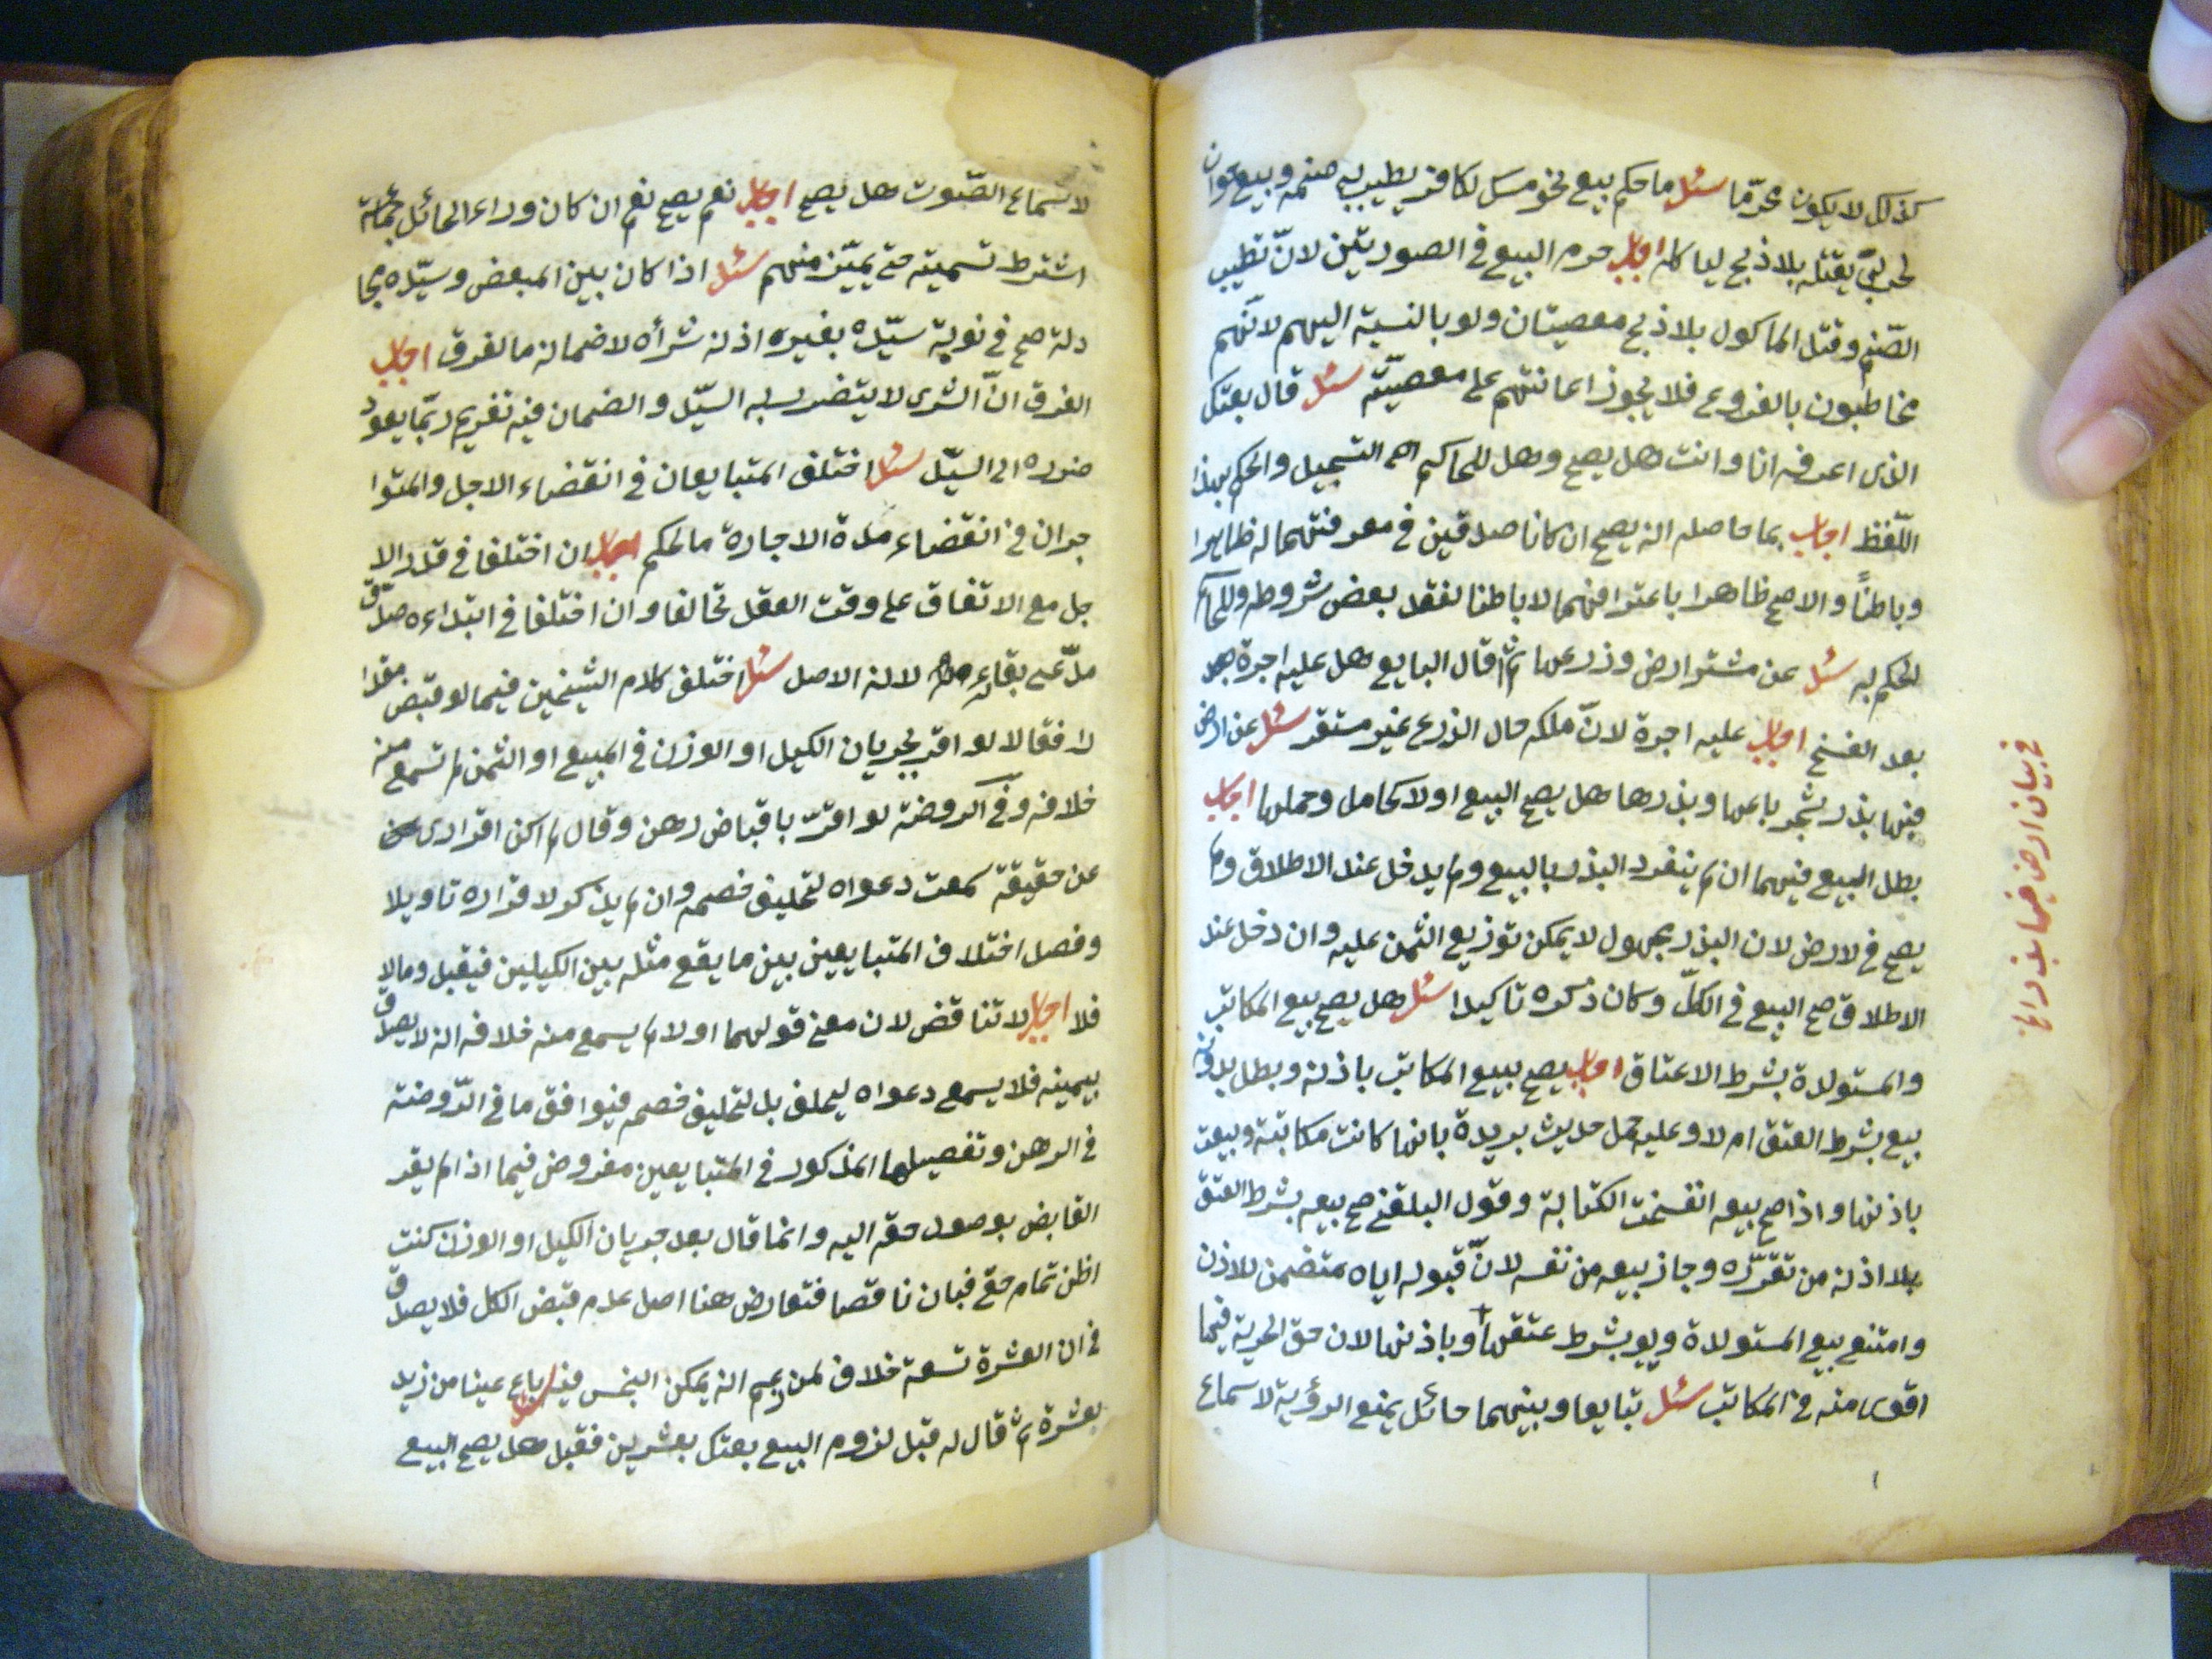 كذلك لا يكون محرّما سئل ما حكم بيع نحو مسك لكافر يطيب به صنمه وبيع حيوان
لحربيّ يقتله بلا ذبح لياكله اجاب حرم البيع في الصورتين لانّ تطييب
الصّنم وقتل الماكول بلا ذبح معصيتان ولو بالنسبة اليهم لانّهم
مخاطبون بالفروع فلا يجوز اعانتهم على معصيّة سئل قال بعتك
الذى اعرفه انا وانت هل يصح وهل للحاكم التسجيل والحكم بهذا
اللّفظ اجاب بما حاصله انه يصح ان كانا صادقين في معرفتهما له ظاهرا
وباطناً والا صح ظاهرا باعترافهما لا باطنا لفقد بعض شروطه وللحاكم
الحكم به سئل عن مشتر ارض وزرعها ثم اقال البايع هل عليه اجرة
بعد الفسخ اجاب عليه اجرة لانّ ملكه حال الزرع غير مستقر سئل عن ارض
فيها بذر شجر باعها وبذرها هل يصح البيع اولا كحامل وحملها اجاب
بطل البيع فيهما ان لم ينفرد البذر بالبيع ولم يدخل عند الاطلاق ولم
يصح في لارض لان البذر مجهول لا يمكن توزيع الثمن عليه وان دخل عند
الاطلاق صح البيع في الكلّ وكان ذكره تاكيدا سئل هل يصح بيع المكاتب
والمستولدة بشرط الاعتاق اجاب يصح بيع المكاتب باذنه وبطل بدونه
بيع بشرط العتق ام لا وعليه حمل حديث بريدة بانها كانت مكاتبة وبيعت
باذنها واذا صح بيعه انفسخت الكتابة وقول البلقني صح بيعه بشرط العتق
بلا اذنه من تفرّده وجاز بيعه من نفسه لانّ قبوله اياه متضمن للاذن
وامتنع بيع المستولدة ولو بشرط عتقها وباذنها لان حق الحرية فيها
اقوى منه في المكاتب سئل تبايعا وبينهما حائل يمنع الرؤية لا سماع
في بيان ارض فيها بذر الخ
لا سماع الصّوت هل يصح اجاب نعم يصح نعم ان كان وراء الحائل جماعة
اشترط تسميته حتى يميّز منهم سئل اذا كان بين المبعض وسيّده مها
دلة صح في نوبة سيّده بغيره اذنه شرأه لا ضمانه ما الفرق اجاب
الفرق انّ الشرى لا يتضرر به السيّد والضمان فيه تغريم ربّما يعود
ضرره الى السيّد سئل اختلف المتبايعان في انقضاء الاجل والمتوا
جران في انقضاء مدة الاجارة ما الحكم اجاب ان اختلفا في قدر الا
جل مع الاتفاق على وقت العقد تحالفا وان اختلفا في ابتداءه صدّق
مدّعى بقاءه لانه الاصل سئل اختلف كلام الشيخين فيما لو قبض مقدا
را فقالا لو اقر بجريان الكيل او الوزن في المبيع او الثمن لم تسمع منه
خلافه وفي الروضة لو اقرّ باقباض رهن وقال لم اكن اقرارى
عن حقيقة سمعت دعواه لتحليف خصمه وان لم يذكر لاقراره تاويلا
وفصل اختلاف المتبايعين بين ما يقع مثله بين الكيلين فيقبل وما لا
فلا اجاب لا تناقض لان معنى قولهما اولا لم يسمع منه خلافه انه لا يصدق
بيمينه فلا يسمع دعواه ليحلف بل لتحليف خصمه فيوافق ما في الرّوضة
في الرهن وتفصيلها المذكور في المتبايعين مفروض فيما اذا لم يقر
القابض بوصول حقه اليه وانما قال بعد جريان الكيل او الوزن كنت
اظن تمام حقي فبان ناقصا فتعارض هنا اصل عدم قبض الكل فلا يصدق
في ان العشرة تسعة خلاف لمن زعم انه يمكن البخس فيه سئل باع عينا من زيد
بعشرة ثم قال له قبل لزوم البيع بعتك بعشرين فقبل هل يصح البيع